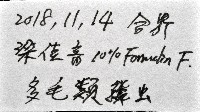 2018, 11, 14 合界
梁佳音 10% Formalin F.
多毛類 猿虫